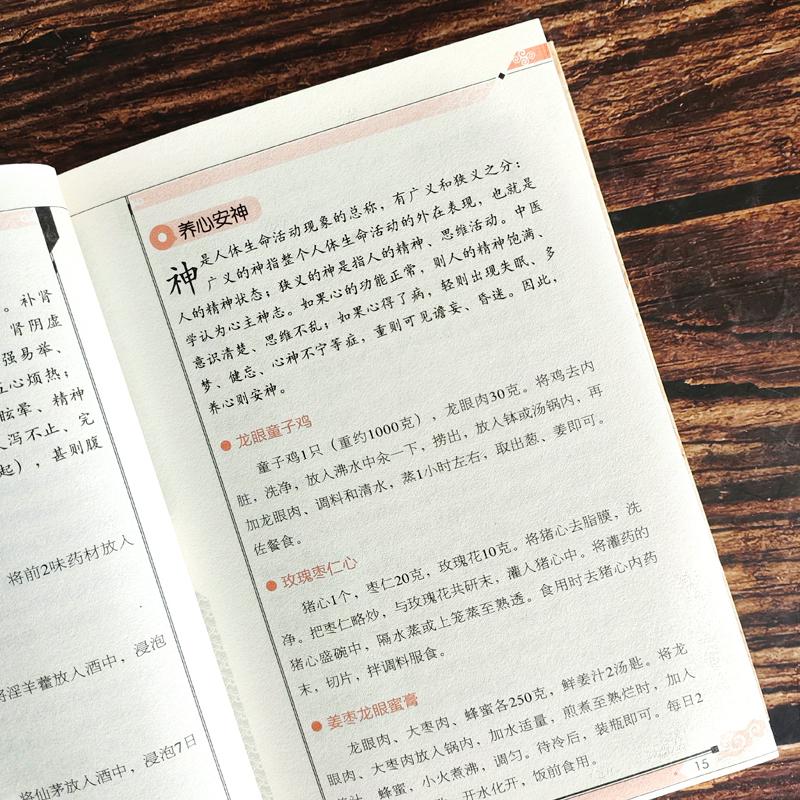 。补肾
肾阴虚
强易举、
五心烦热；
眩晕、精神
泻不止、完
起），甚则腹
将前2味药材放入
将淫羊藿放入酒中，浸泡
将仙茅放入酒中，浸泡7日
养心安神
神是人体生命活动现象的总称，有广义和狭义之分；
广义的神指整个人体生命活动的外在表现，也就是
人的精神状态；狭义的神是指人的精神、思维活动。中医
学认为心主神志。如果心的功能正常，则人的精神饱满、
意识清楚、思维不乱；如果心得了病，轻则出现失眠、多
梦、健忘、心神不宁等症，重则可见谵妄、昏迷。因此，
养心则安神。
龙眼童子鸡
童子鸡1只（重约1000克），龙眼肉30克。将鸡去内
脏，洗净，放入沸水中汆一下，捞出，放入钵或汤锅内，再
加龙眼肉、调料和清水，蒸1小时左右，取出葱、姜即可。
佐餐食。
玫瑰枣仁心
猪心1个，枣仁20克，玫瑰花10克。将猪心去脂膜，洗
净。把枣仁略炒，与玫瑰花共研末，灌入猪心中。将灌药的
猪心盛碗中，隔水蒸或上笼蒸至熟透。食用时去猪心内药
末，切片，拌调料服食。
姜枣龙眼蜜膏
龙眼肉、大枣肉、蜂蜜各250克，鲜姜汁2汤匙。将龙
眼肉、大枣肉放入锅内，加水适量，煎煮至熟烂时，加入
姜汁、蜂蜜，小火煮沸，调匀。待冷后，装瓶即可。每日2
开水化开，饭前食用。
15